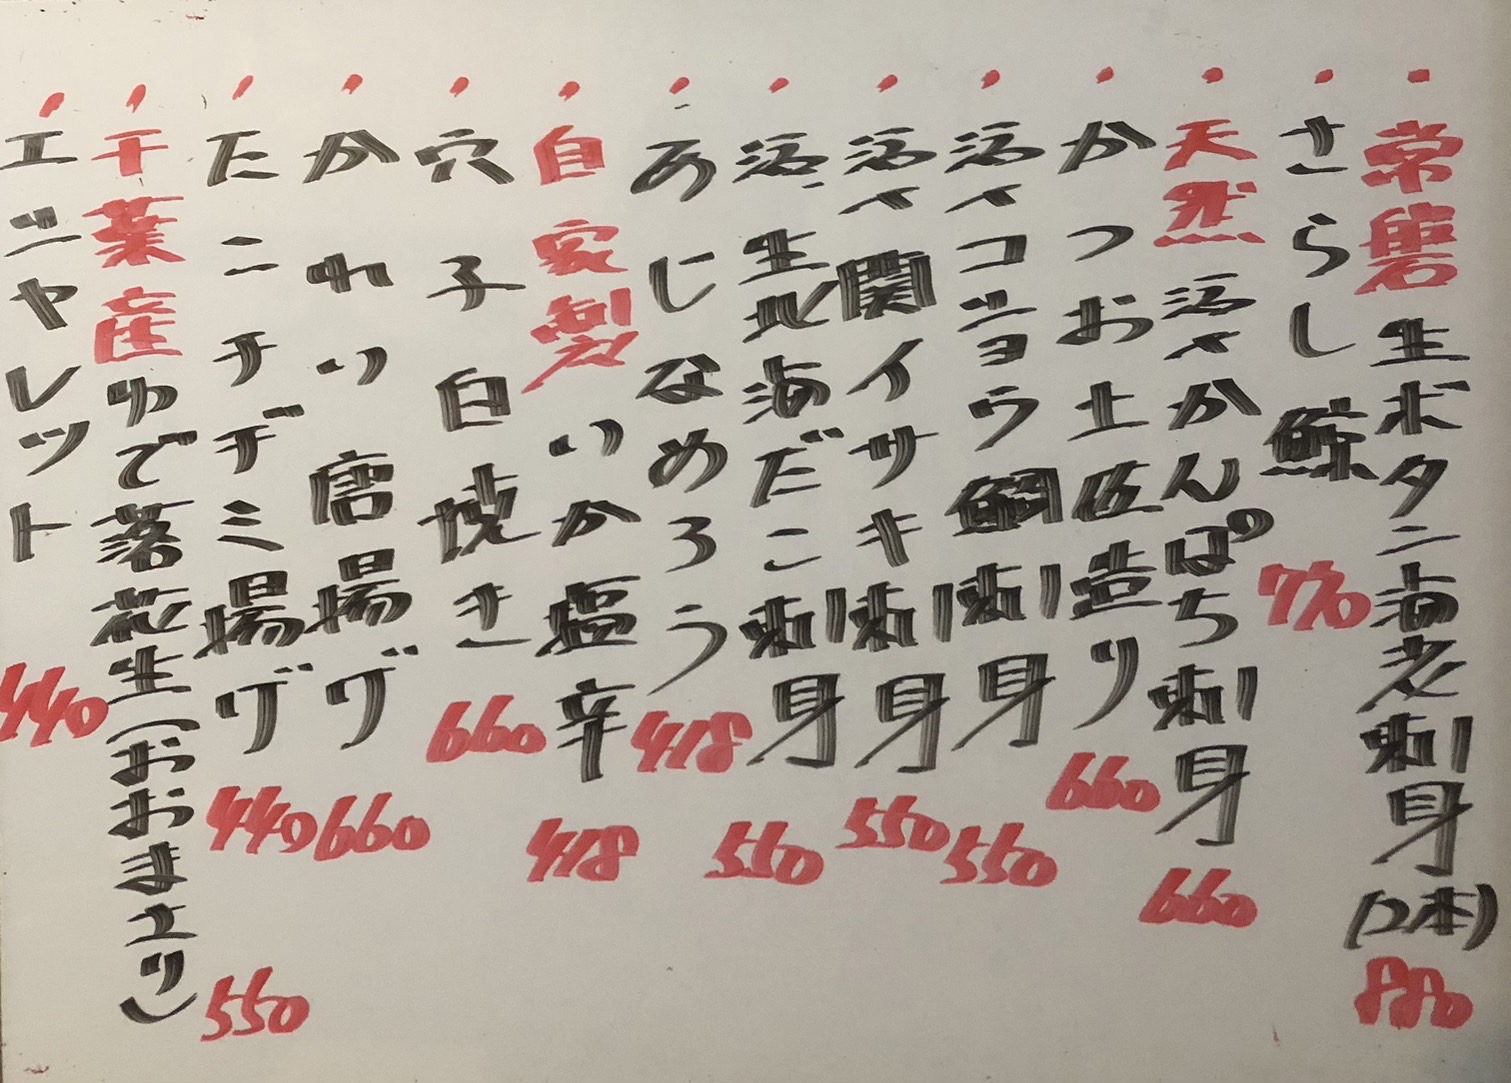 ・常磐生ボタン海老刺身(2本) 880
・さらし鯨 770
・天然活〆かんぱち刺身 660
・かつお土佐造り 660
・活〆コショウ鯛刺身 550
・活〆関イサキ刺身 550
・活、生北海だこ刺身 550
・あじなめろう 418
・自家製いか塩辛 418
・穴子白焼き 660
・かれい唐揚げ 660
・たこチヂミ揚げ 440
・千葉産ゆで落花生(おおまさり) 550
・エシャレット 440